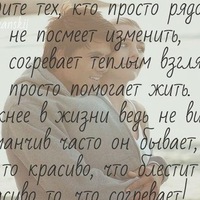 ите тех, кто просто рядо
не посмеет изменить,
согревает теплым взгля
просто помогает жить.
жнее в жизни ведь не ви
манчив часто он бывает,
то красиво, что блестит
сиво то, что согревает!